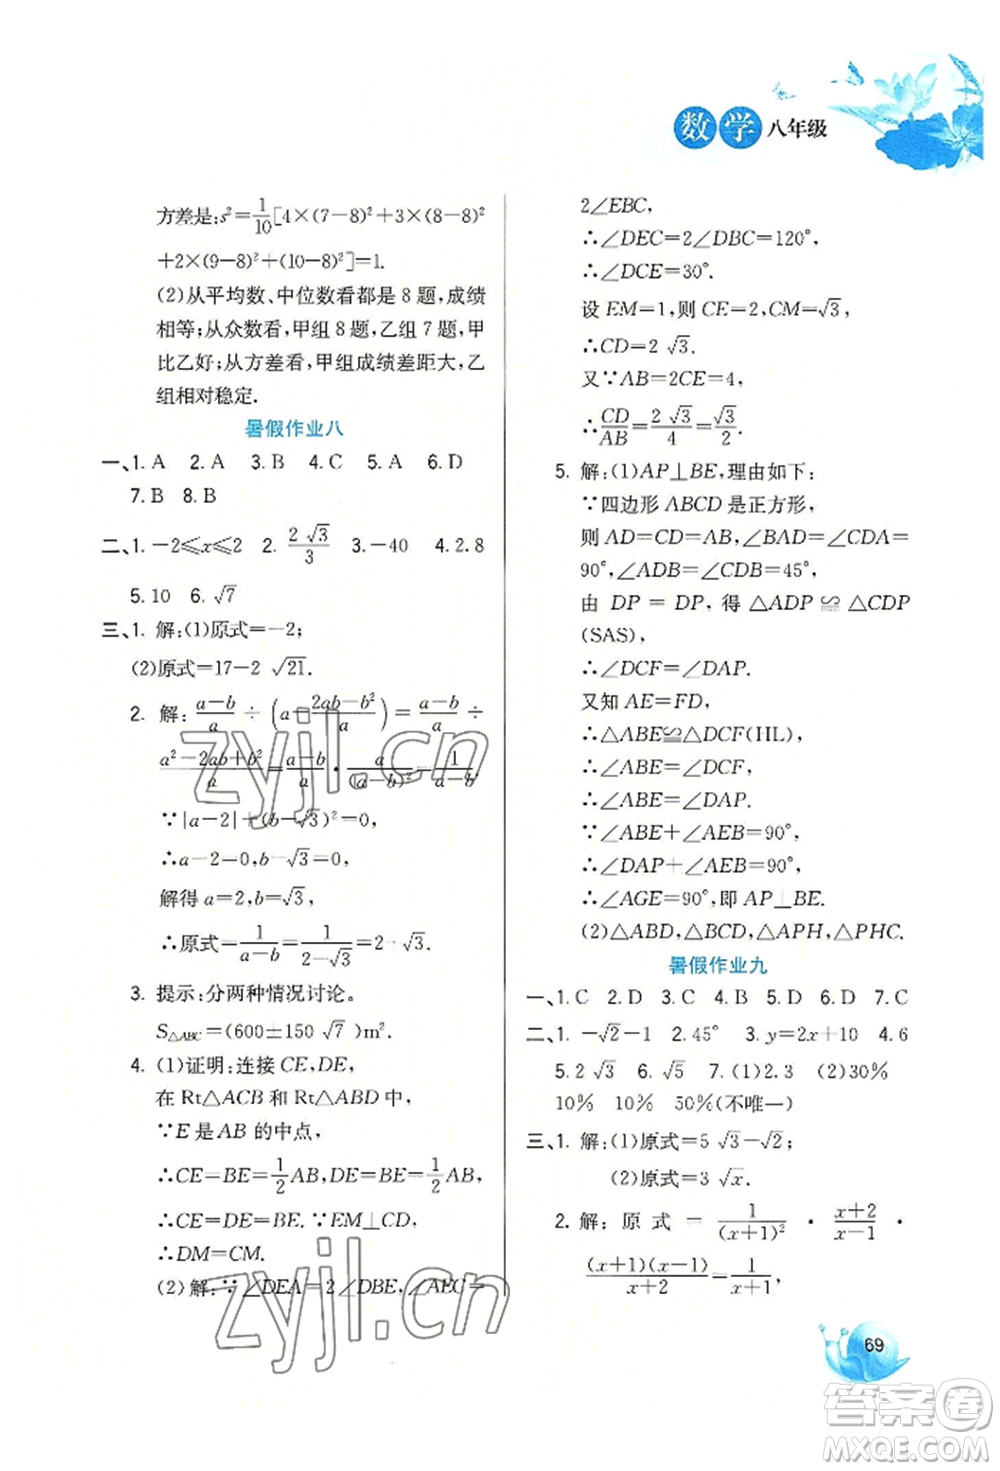 数学 八年级
方差是:s²=1/10[4×(7-8)²+3×(8-8)²
+2×(9-8)²+(10-8)²]=1.
(2)从平均数、中位数看都是 8 题,成绩
相等;从众数看,甲组 8 题,乙组 7 题,甲
比乙好;从方差看,甲组成绩差距大,乙
组相对稳定.
暑假作业八
一、1. A 2. A 3. B 4. C 5. A 6. D
7. B 8. B
二、1. -2≤x≤2 2. 2√3/3 3. -40 4. 2.8
5. 10 6. √7
三、1. 解:(1)原式=-2;
(2)原式=17-2√21.
2. 解: (a-b)/a ÷ (a-(2ab-b²)/a) = (a-b)/a ÷
(a²-2ab+b²)/a = (a-b)/a · a/(a-b)² = 1/(a-b)
∵|a-2|+(b-√3)²=0,
∴a-2=0,b-√3=0,
解得 a=2,b=√3,
∴原式=1/(a-b)=1/(2-√3)=2+√3.
3. 提示:分两种情况讨论。
S△ABC=(600±150√7)m².
4. (1)证明:连接 CE,DE,
在 Rt△ACB 和 Rt△ADB 中,
∵E 是 AB 的中点,
∴CE=BE=1/2AB,DE=BE=1/2AB,
∴CE=DE=BE.∵EM⊥CD,
∴DM=CM.
(2)解:∵∠DEA=2∠DBE,∠AEC=
2∠EBC,
∴∠DEC=2∠DBC=120°,
∴∠DCE=30°.
设 EM=1,则 CE=2,CM=√3,
∴CD=2√3.
又∵AB=2CE=4,
∴CD/AB=2√3/4=√3/2.
5. 解:(1)AP⊥BE,理由如下:
∵四边形 ABCD 是正方形,
则 AD=CD,∠BAD=∠CDA=
90°,∠ADB=∠CDB=45°,
由 DP = DP, 得 △ADP ≌ △CDP
(SAS),
∴∠DCF=∠DAP.
又知 AE=FD,
∴△ABE≌△DCF(HL),
∴∠ABE=∠DCF,
∴∠ABE=∠DAP.
∵∠ABE+∠AEB=90°,
∴∠DAP+∠AEB=90°,
∴∠AGE=90°,即 AP⊥BE.
(2)△ABD,△BCD,△APH,△PHC.
暑假作业九
一、1. C 2. D 3. C 4. B 5. D 6. D 7. C
二、1. -√2-1 2. 45° 3. y=2x+10 4. 6
5. 2√3 6. √5 7. (1)2.3 (2)30%
10% 10% 50%(不唯一)
三、1. 解:(1)原式=5√3-√2;
(2)原式=3√x.
2. 解: 原式 = 1/(x+1)² · (x+2)/(x-1) ·
(x+1)(x-1)/(x+2)=1/(x+1),
69
zyjl.cn
zyjl.cn
答案圈
MXQE.COM